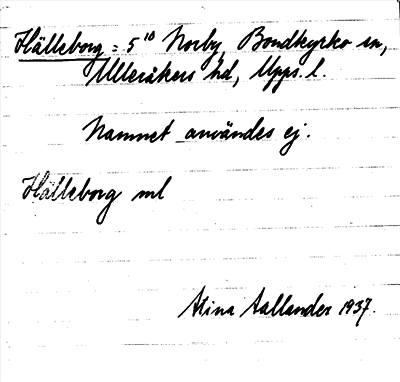 Hälleborg = 5¹⁰ Norby, Bondkyrko sn,
Ulleråkers hd, Upps. l.
Namnet användes ej.
Hälleborg ml
Stina Aallander 1937.